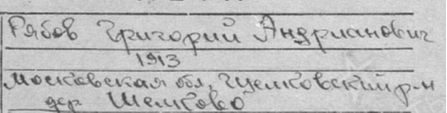 Рябов Григорий Андрианович
1913
Московская обл., Щелковский р-н
дер Шелково